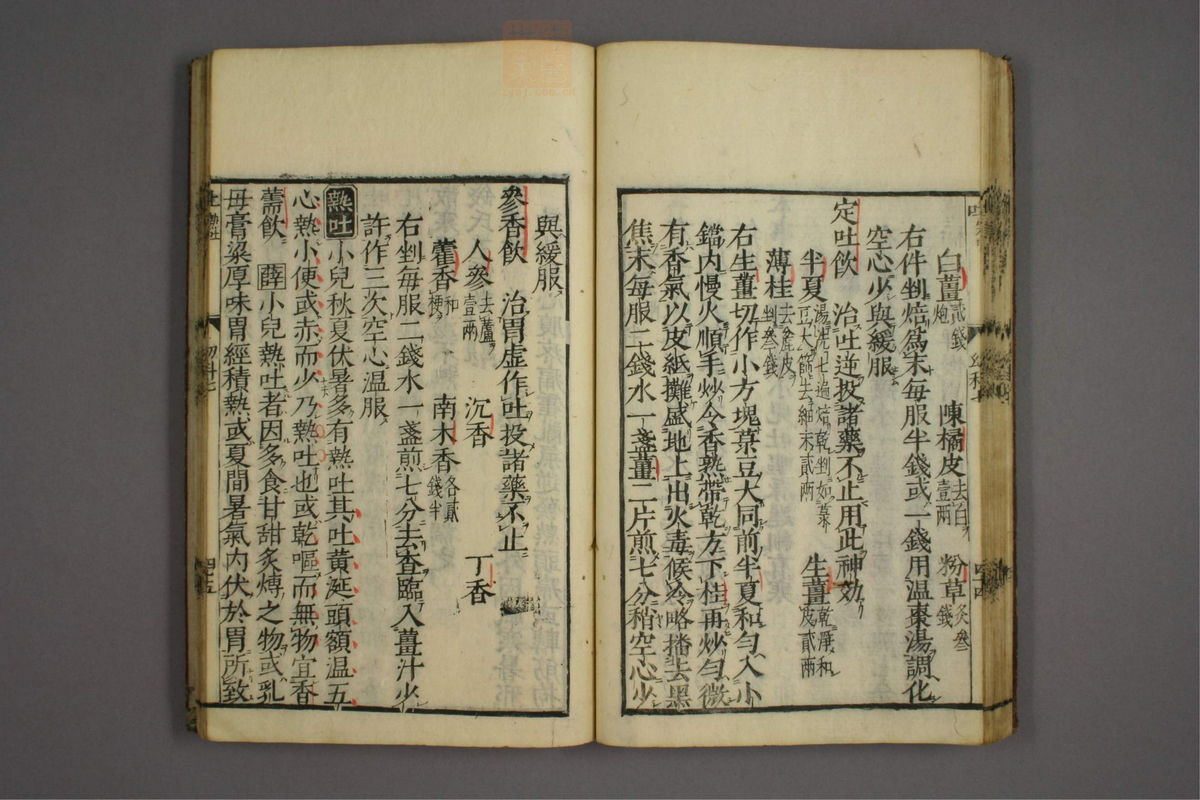 白薑貳錢炮 陳橘皮去白壹兩 粉草炙叄錢
右件剉焙爲末每服半錢或一錢用温棗湯調化
空心少與緩服
定吐飲 治吐逆投諸藥不止用此神効
半夏湯洗七遍焙乾剉如菉豆大篩去細末貳兩 生薑乾淨和皮貳兩
薄桂去麄皮剉叄錢
右生薑切作小方塊菉豆大同前半夏和勻入小
鐺内慢火順手炒令香熟帶乾方下桂再炒勻微
有香氣以皮紙攤盛地上出火毒候冷略播去黑
焦末每服二錢水一盞薑二片煎七分稍空心少
與緩服
參香飲 治胃虚作吐投諸藥不止
人參去蘆壹兩 沉香 丁香
藿香和梗 南木香各貳錢半
右剉每服二錢水一盞煎七分去査臨入薑汁少
許作三次空心温服
熱吐小兒秋夏伏暑多有熱吐其吐黃涎頭額温五
心熱小便或赤而少乃熱吐也或乾嘔而無物宜香
薷飲 薛小兒熱吐者因多食甘甜炙煿之物或乳
母膏粱厚味胃經積熱或夏間暑氣内伏於胃所致
四十五